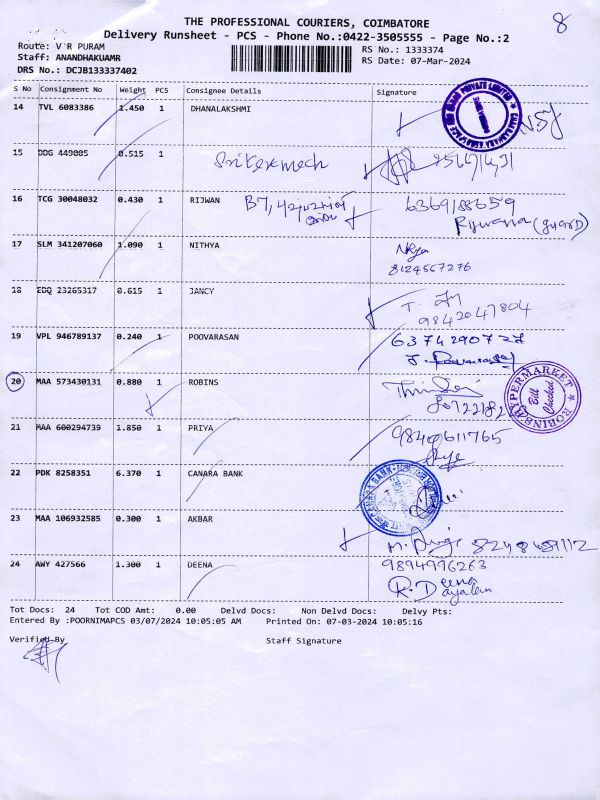 8
THE PROFESSIONAL COURIERS, COIMBATORE
Delivery Runsheet - PCS - Phone No.:0422-3505555 - Page No.:2
Route: V R PURAM
RS No.: 1333374
Staff: ANANDHAKUAMR
RS Date: 07-Mar-2024
DRS No.: DCJB133337402
S No Consignment No Weight PCS Consignee Details Signature
14 TVL 6083386 1.450 1 DHANALAKSHMI
15 DDG 449005 0.515 1
16 TCG 30048032 0.430 1 RIJWAN B7, 6369188659
Rijwana (guard)
17 SLM 341207060 1.090 1 NITHYA
8124567276
18 EDQ 23265317 0.615 1 JANCY
9842047804
19 VPL 946789137 0.240 1 POOVARASAN 63742907
20 MAA 573430131 0.880 1 ROBINS
ROBINS HYPERMARKET
Bill Checked
21 MAA 600294739 1.850 1 PRIYA 98400611765
22 PDK 8258351 6.370 1 CANARA BANK
CANARA BANK
23 MAA 106932585 0.300 1 AKBAR
24 AWY 427566 1.300 1 DEENA 9894996263
R. Deena
dayalan
Tot Docs: 24 Tot COD Amt: 0.00 Delvd Docs: Non Delvd Docs: Delvy Pts:
Entered By :POORNIMAPCS 03/07/2024 10:05:05 AM Printed On: 07-03-2024 10:05:16
Verified By Staff Signature